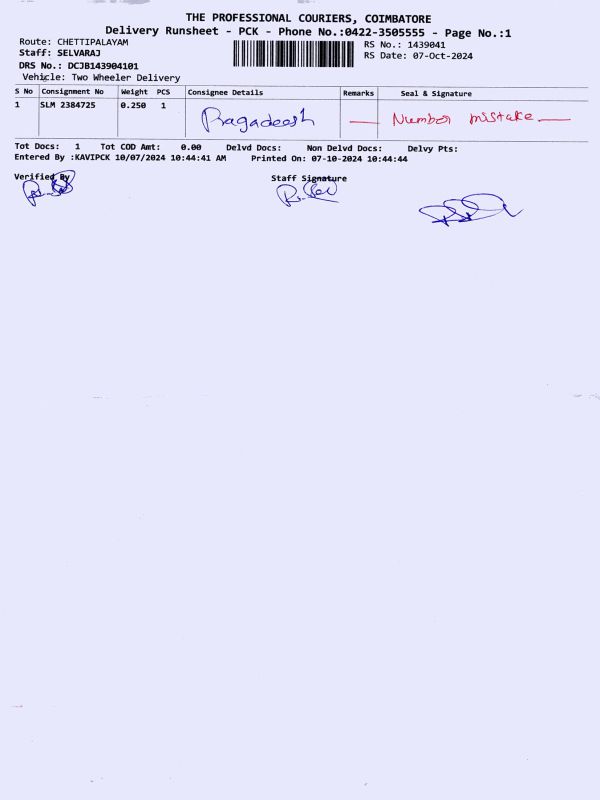 THE PROFESSIONAL COURIERS, COIMBATORE
Delivery Runsheet - PCK - Phone No.:0422-3505555 - Page No.:1
Route: CHETTIPALAYAM
RS No.: 1439041
Staff: SELVARAJ
RS Date: 07-Oct-2024
DRS No.: DCJB143904101
Vehicle: Two Wheeler Delivery
S No Consignment No Weight PCS Consignee Details Remarks Seal & Signature
1 SLM 2384725 0.250 1 Pragadeesh — Number mistake —
Tot Docs: 1 Tot COD Amt: 0.00 Delvd Docs: Non Delvd Docs: Delvy Pts:
Entered By :KAVIPCK 10/07/2024 10:44:41 AM Printed On: 07-10-2024 10:44:44
Verified By Staff Signature